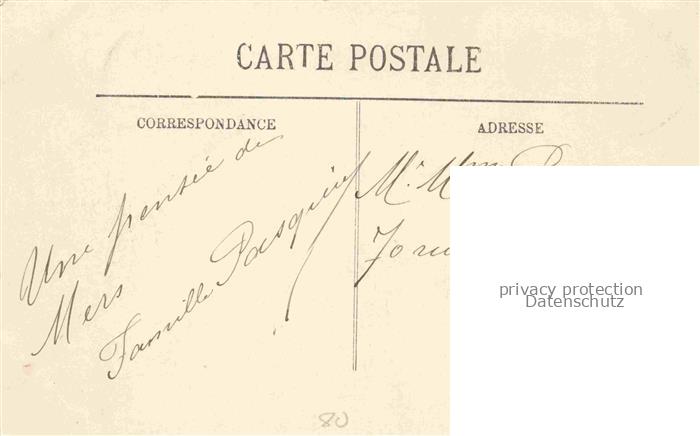 CARTE POSTALE
CORRESPONDANCE
ADRESSE
Une pensée de
Mers
Famille Pasquier
Mr Mme P
70 rue
privacy protection
Datenschutz
80